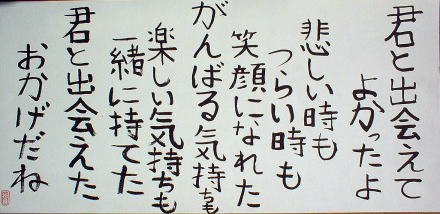 君と出会えて
よかったよ
悲しい時も
つらい時も
笑顔になれた
がんばる気持ちも
楽しい気持ちも
一緒に持てた
君と出会えた
おかげだね